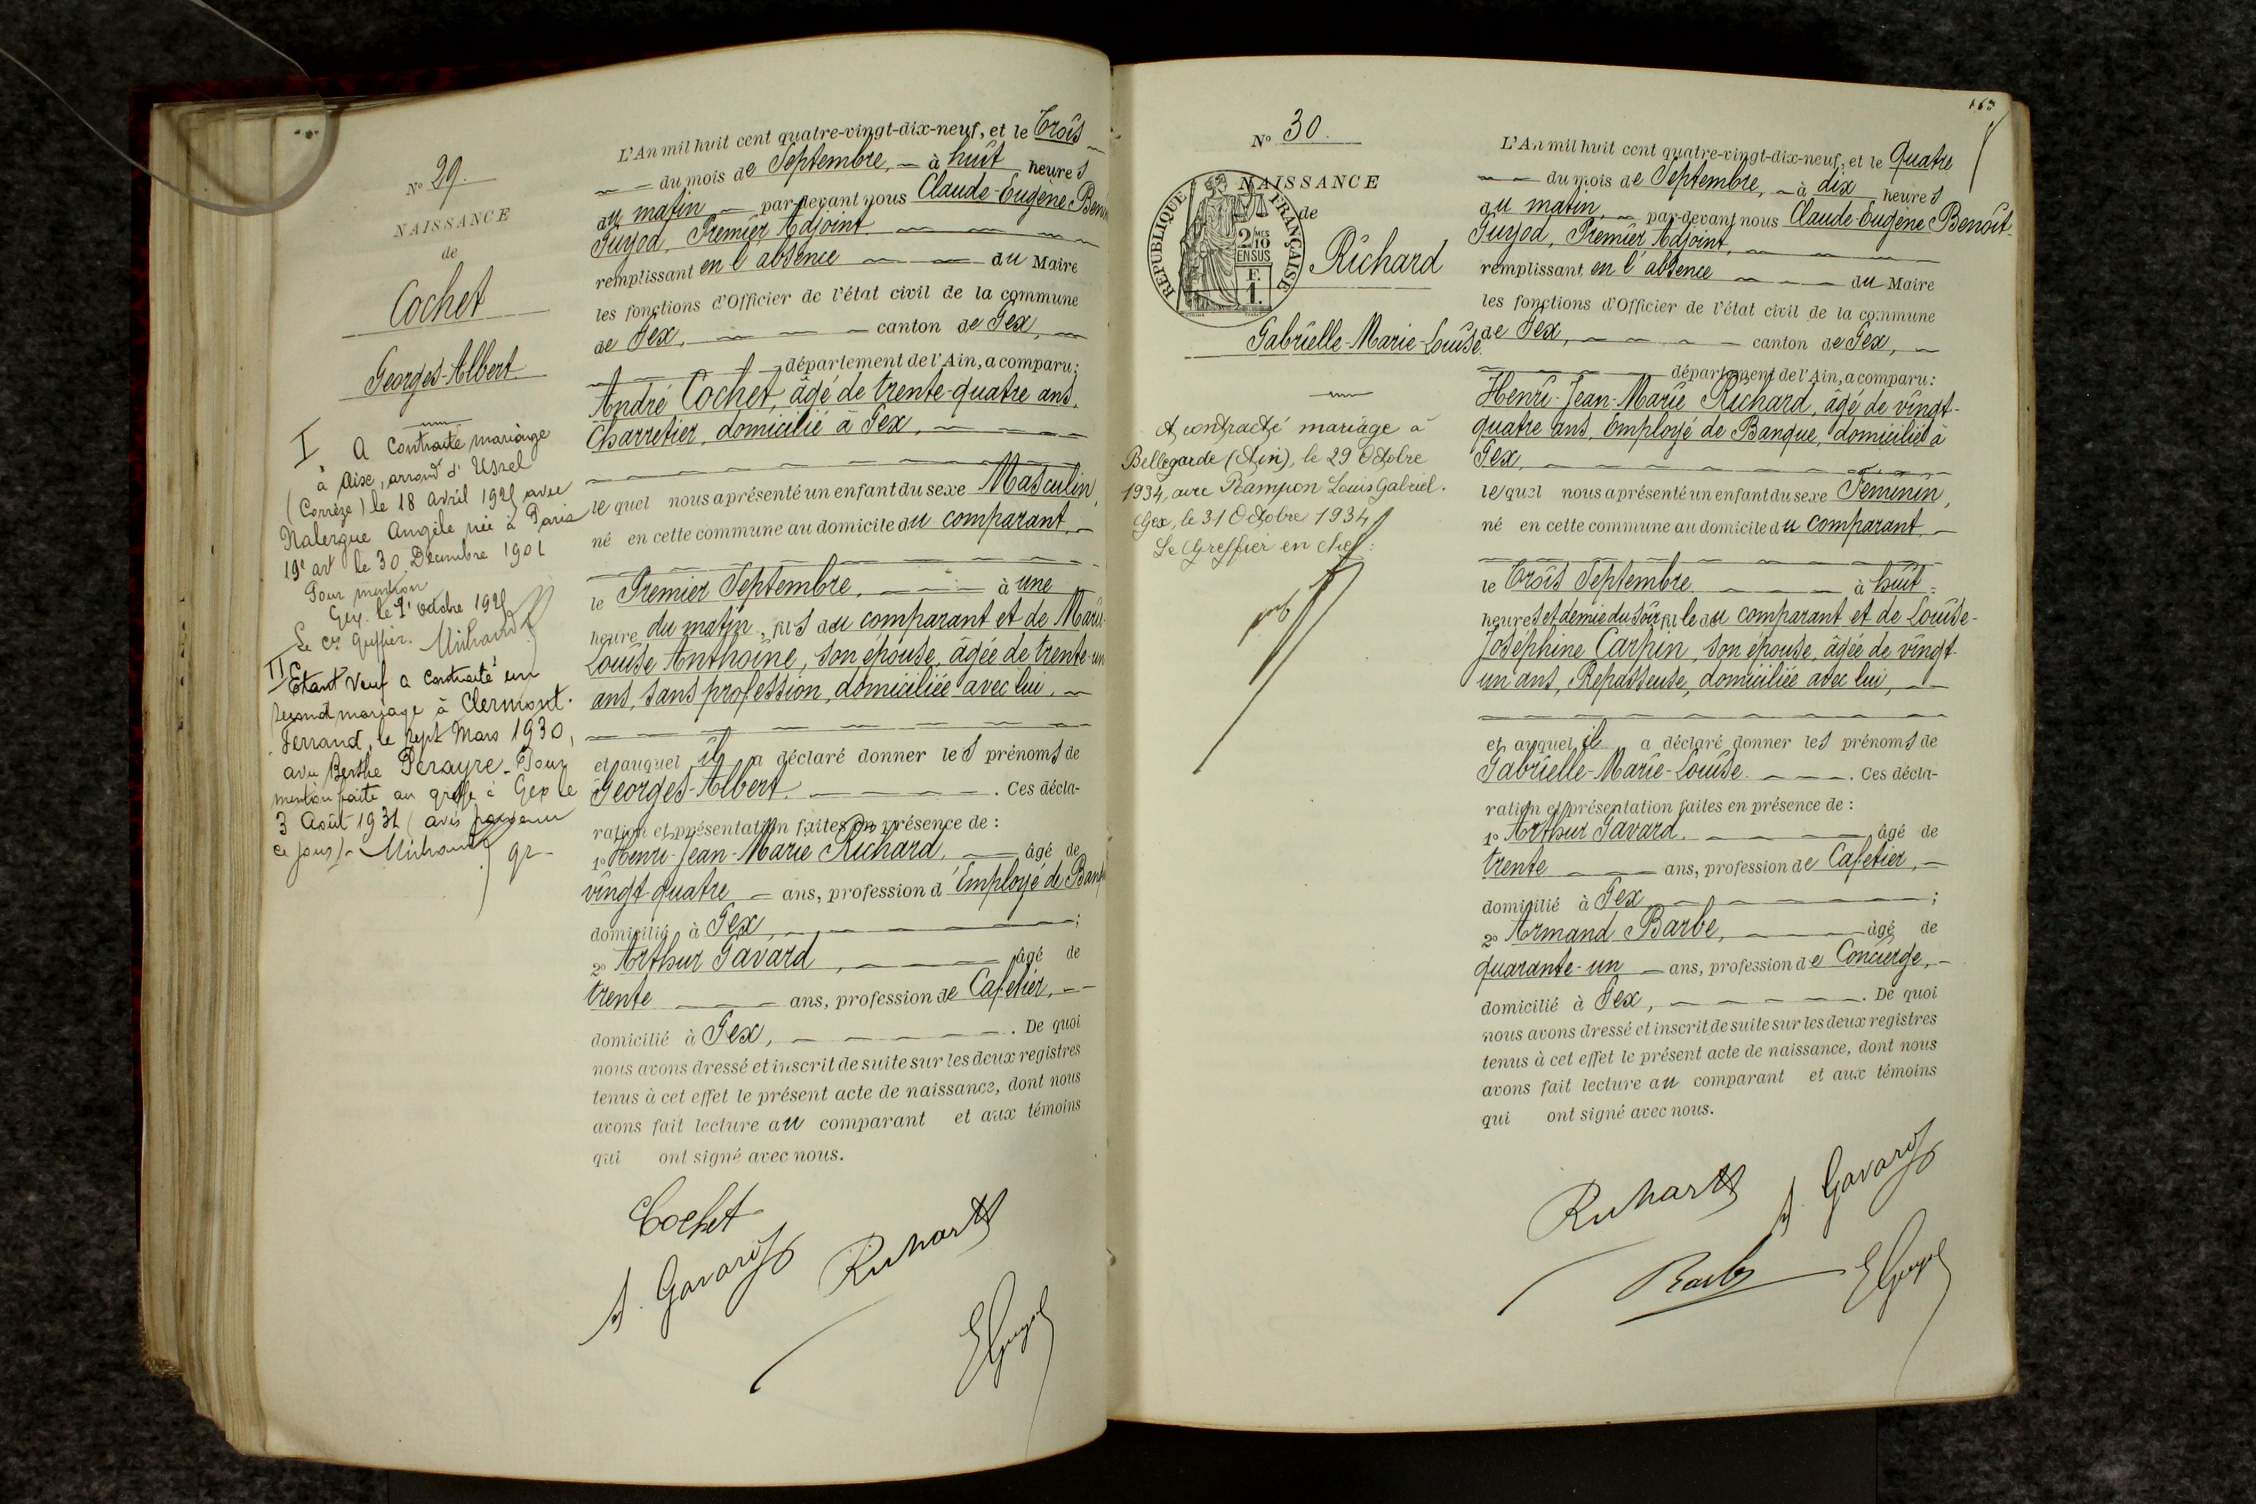 N° 29.
NAISSANCE
de
Cochet
Georges-Albert
I
A Contracté mariage
à Aix, arrond d'Ussel
(Corrèze) le 18 avril 1925 avec
Nalergue Angèle née à Paris
19e art le 30 Décembre 1901
Pour mention
Gex. le 1er octobre 1925
Le Greffier. Michaud
II
Etant Veuf a contracté un
second mariage à Clermont-
Ferrand, le sept Mars 1930,
avec Berthe Perayre - Pour
mention faite au greffe à Gex le
3 Août 1931 (avis parvenu
ce jour) - Michaud
L'An mil huit cent quatre-vingt-dix-neuf, et le Trois
du mois de Septembre, à huit heures
du matin par-devant nous Claude-Eugène-Benoit
Guyod, Premier Adjoint
remplissant en l'absence du Maire
les fonctions d'Officier de l'état civil de la commune
de Gex, canton de Gex,
département de l'Ain, a comparu:
André Cochet, âgé de trente-quatre ans,
Charretier, domicilié à Gex,
le quel nous a présenté un enfant du sexe Masculin,
né en cette commune au domicile du comparant,
le Premier Septembre, à une
heure du matin, fils du comparant et de Marie-
Louise Anthoine, son épouse, âgée de trente-un
ans, sans profession, domiciliée avec lui,
et auquel il a déclaré donner les prénoms de
Georges-Albert. Ces décla-
ration et présentation faites en présence de :
1° Henri-Jean-Marie Richard, âgé de
vingt quatre ans, profession d'Employé de Banque
domicilié à Gex, ;
2° Arthur Gavard, âgé de
trente ans, profession de Cafetier,
domicilié à Gex, . De quoi
nous avons dressé et inscrit de suite sur les deux registres
tenus à cet effet le présent acte de naissance, dont nous
avons fait lecture au comparant et aux témoins
qui ont signé avec nous.
Cochet
A. Gavard Richard
E Guyod
163
N° 30.
NAISSANCE
de
RÉPUBLIQUE FRANÇAISE
2/10 MES
EN SUS
F.
1.
Richard
Gabrielle-Marie-Louise.
A contracté mariage à
Bellegarde (Ain), le 29 Octobre
1934, avec Rampon Louis Gabriel.
Gex, le 31 Octobre 1934
Le Greffier en chef :
L'An mil huit cent quatre-vingt-dix-neuf, et le Quatre
du mois de Septembre, à dix heures
du matin, par-devant nous Claude-Eugène Benoit
Guyod, Premier Adjoint,
remplissant en l'absence du Maire
les fonctions d'Officier de l'état civil de la commune
de Gex, canton de Gex,
département de l'Ain, a comparu:
Henri-Jean-Marie Richard, âgé de vingt-
quatre ans, Employé de Banque, domicilié à
Gex,
le quel nous a présenté un enfant du sexe Féminin,
né en cette commune au domicile du comparant,
le Trois Septembre à huit
heures et demie du soir, fille du comparant et de Louise-
Joséphine Carpin, son épouse, âgée de vingt-
un ans, Repasseuse, domiciliée avec lui,
et auquel il a déclaré donner les prénoms de
Gabrielle-Marie-Louise. Ces décla-
ration et présentation faites en présence de :
1° Arthur Gavard, âgé de
trente ans, profession de Cafetier,
domicilié à Gex, ;
2° Armand Barbe, âgé de
quarante-un ans, profession de Concierge,
domicilié à Gex, . De quoi
nous avons dressé et inscrit de suite sur les deux registres
tenus à cet effet le présent acte de naissance, dont nous
avons fait lecture au comparant et aux témoins
qui ont signé avec nous.
Richard A. Gavard
Barbe E Guyod